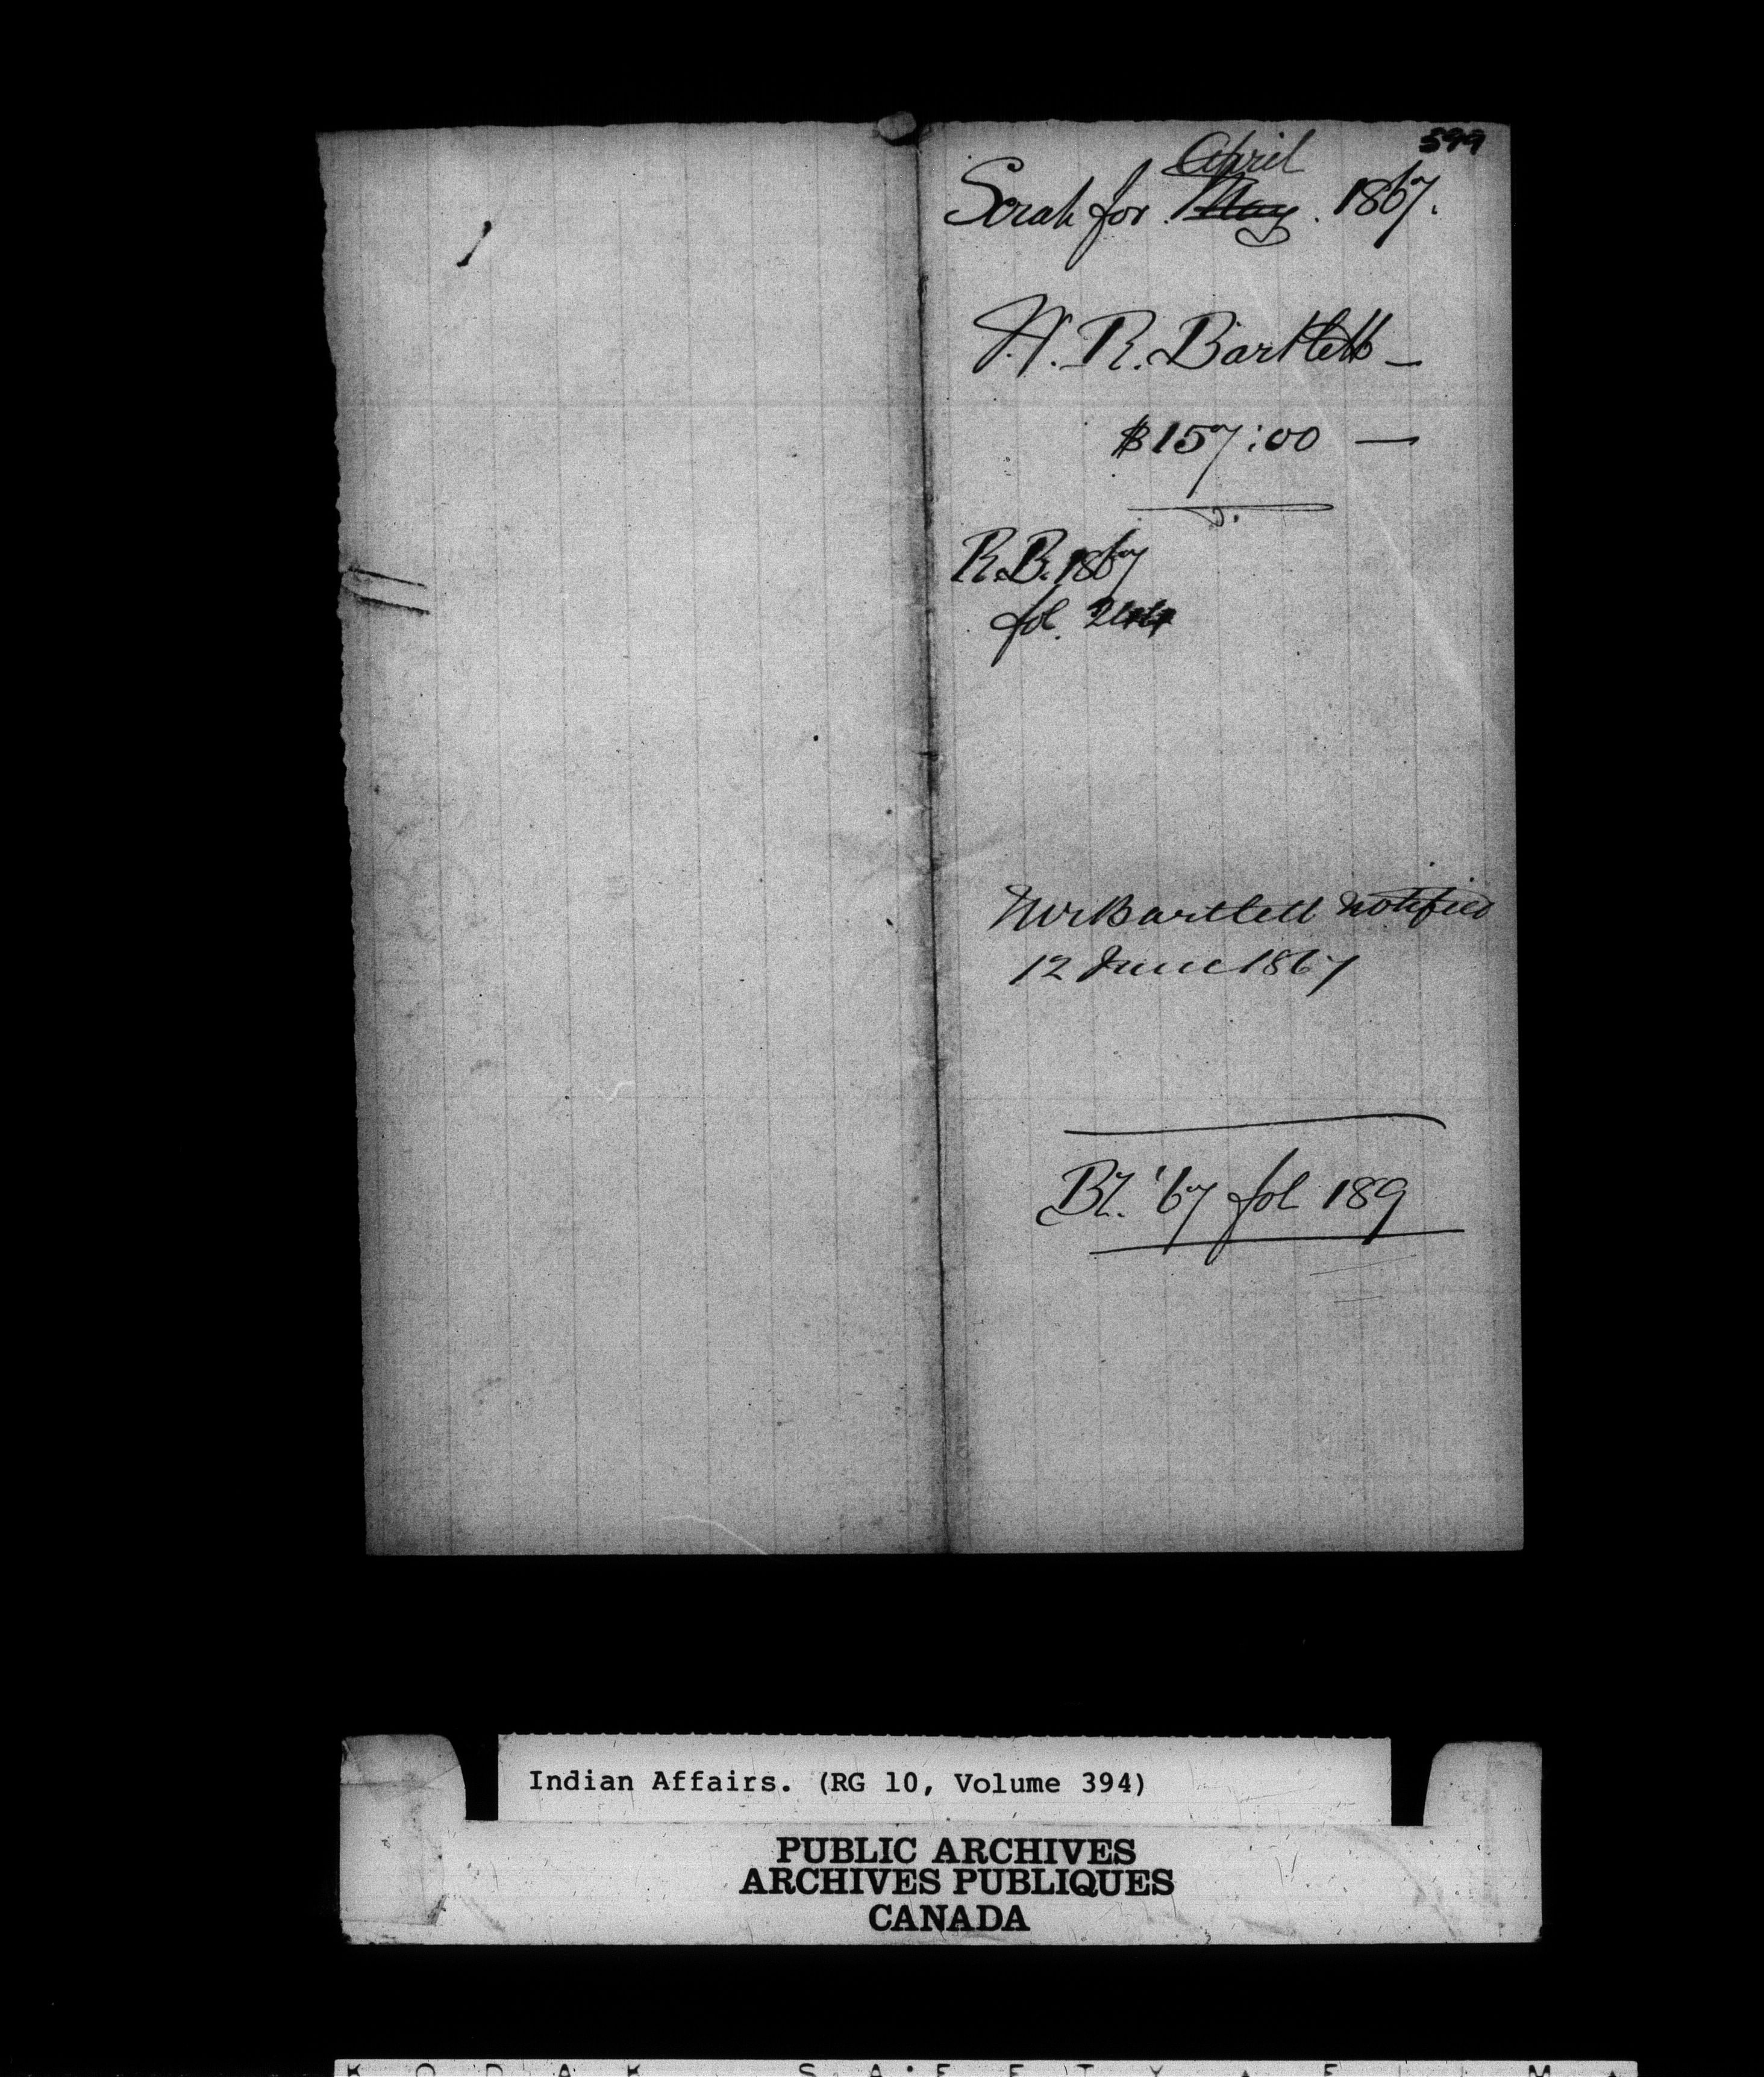 599
April
Sorah for May. 1867.
W. R. Bartlett —
$157:00 —
R.B. 1867
fol. 244
Mr Bartlett notified
12 June 1867
BZ. '67 fol 189
Indian Affairs. (RG 10, Volume 394)
PUBLIC ARCHIVES
ARCHIVES PUBLIQUES
CANADA
KODAK SAFETY FILM